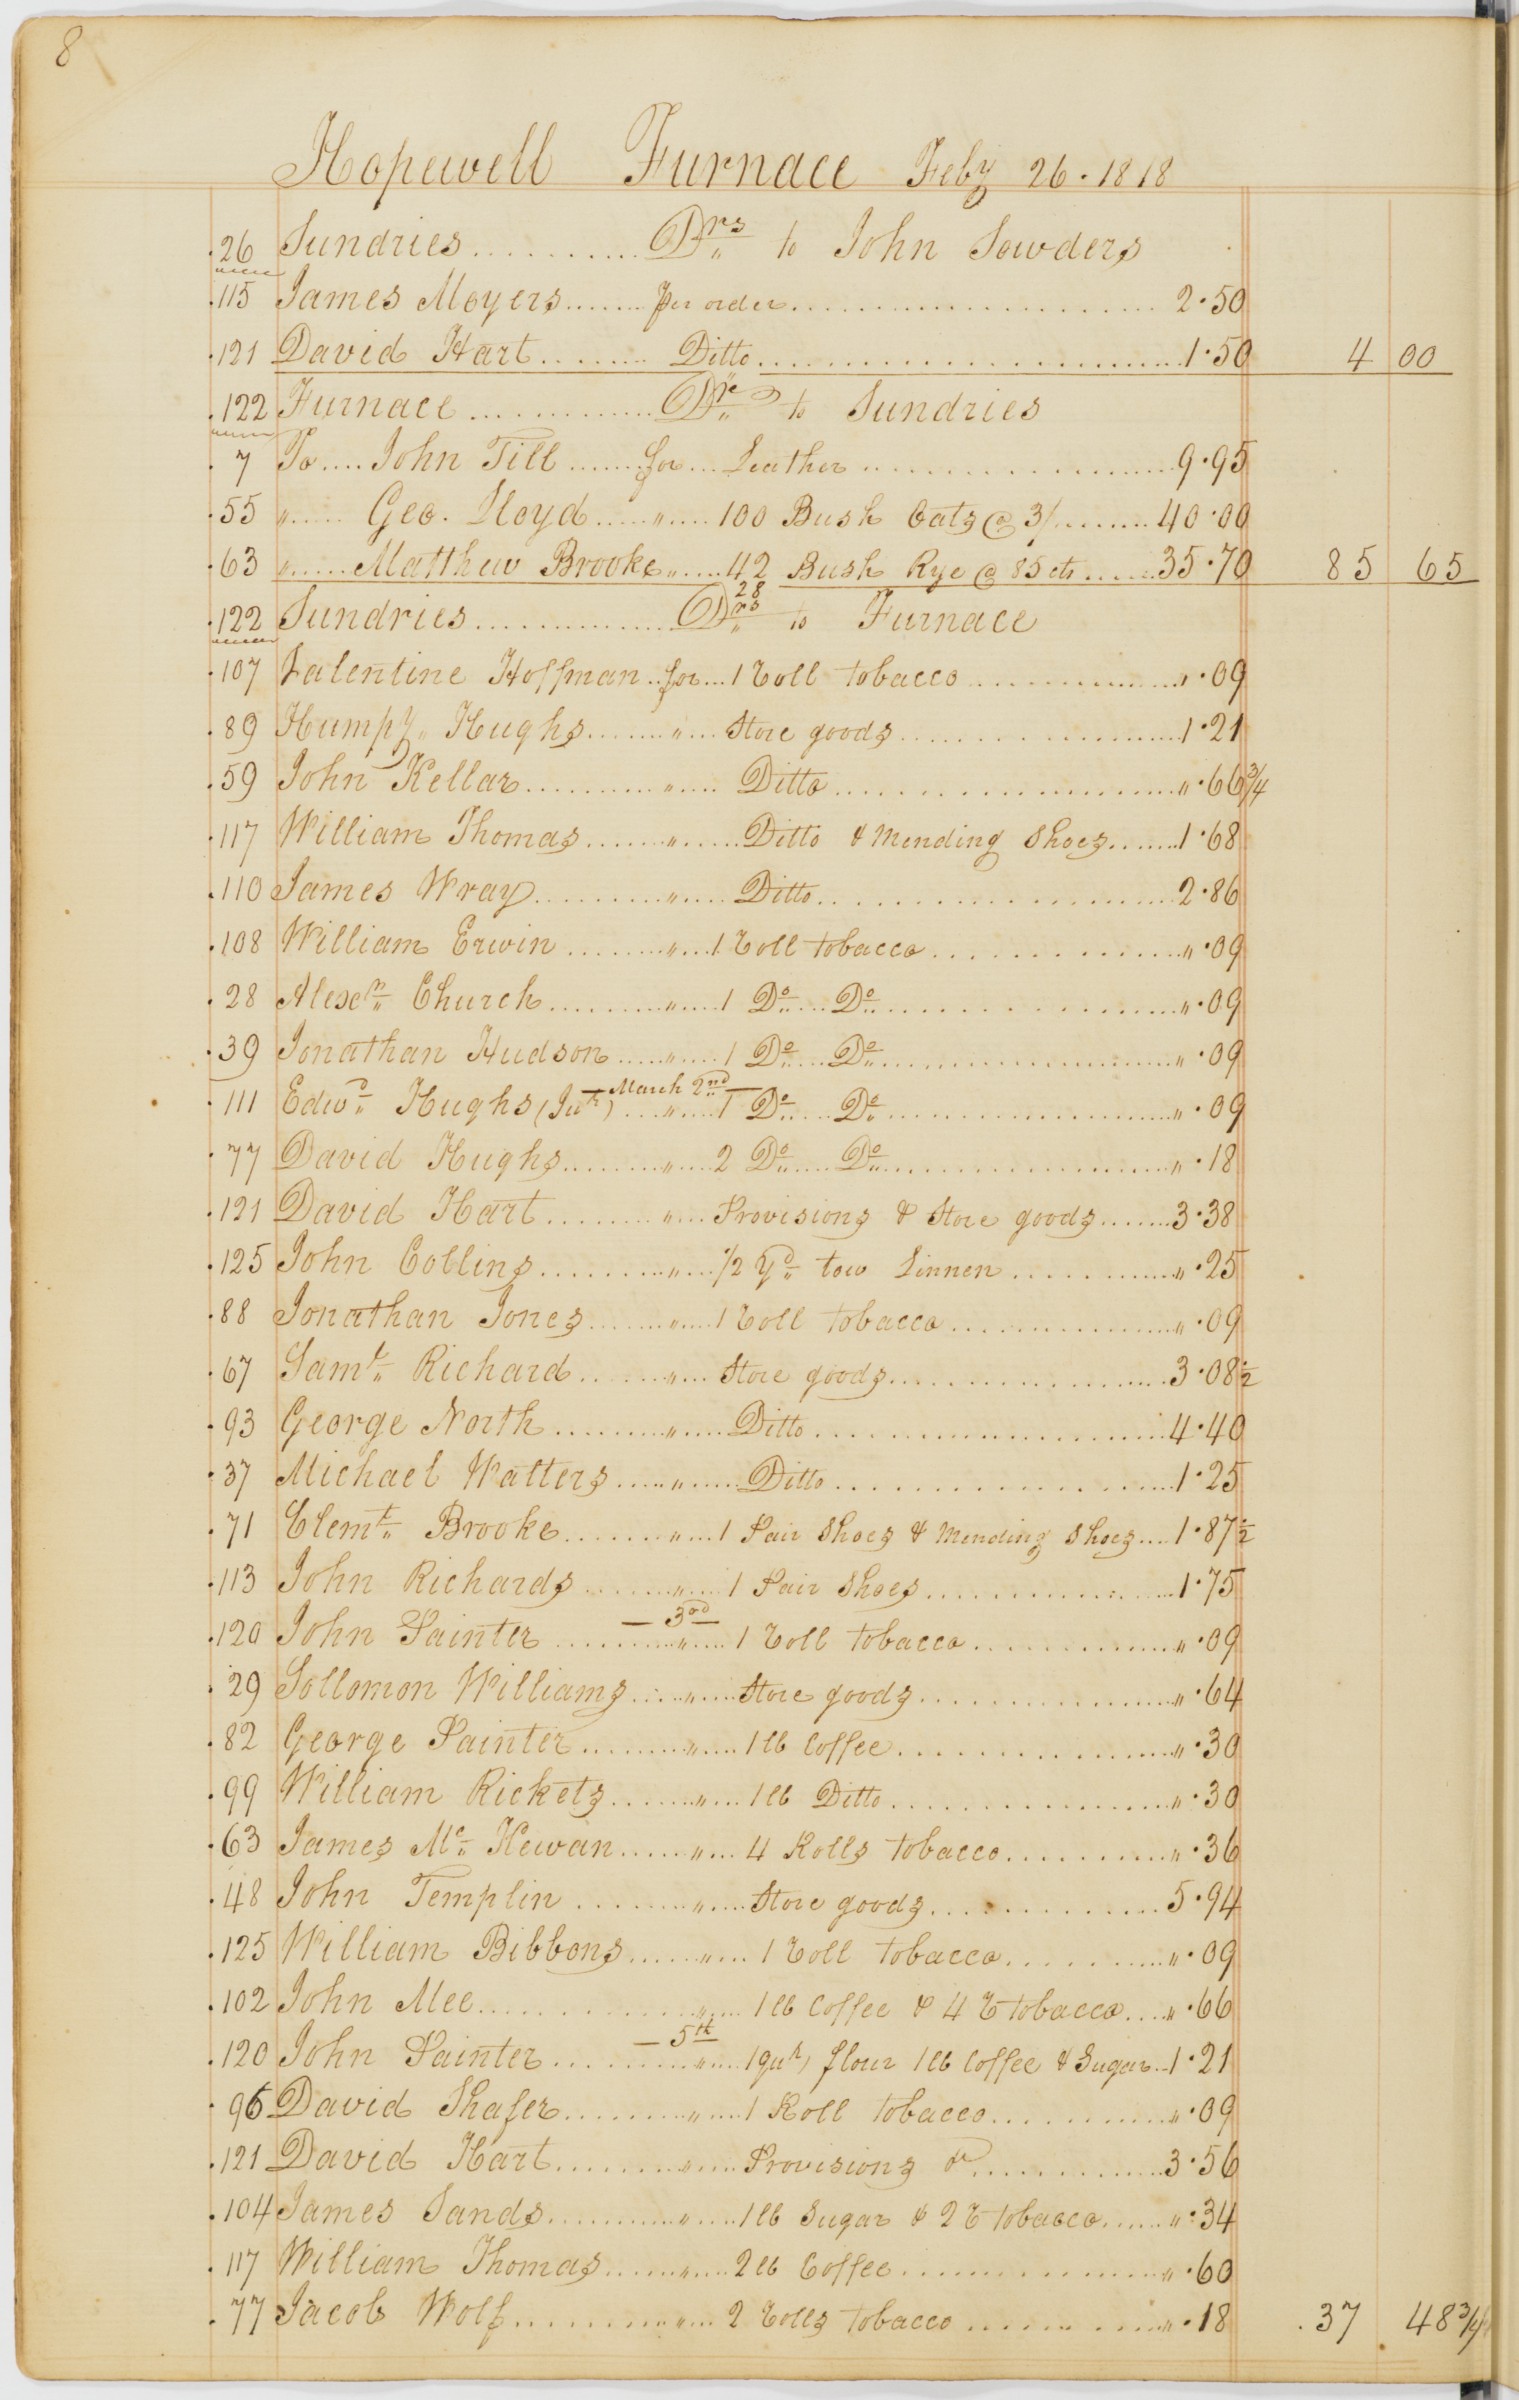 8
Hopewell Furnace Feby 26 · 1818
.26 Sundries ........... Drs to John Sowders
.115 James Moyers ....... per order ................... 2·50
.121 David Hart ........ Ditto ................... 1·50 4 00
.122 Furnace ............. Dr to Sundries
.7 To .... John Till ....... for ... Leather ................... 9·95
.55 " ..... Geo. Lloyd ..... " ..... 100 Bush Oats @ 3/ ......... 40·00
.63 " ..... Matthew Brooke " ..... 42 Bush Rye @ 85 cts ...... 35·70 85 65
28
.122 Sundries .............. Drs to Furnace
.107 Valentine Hoffman .. for ... 1 roll tobacco .............. " ·09
.89 Humpy Hughs ....... " .... Store goods ................... 1·21
.59 John Kellar ........... " ..... Ditto ................... " ·66 3/4
.117 William Thomas ....... " ...... Ditto & Mending Shoes ....... 1·68
.110 James Wray ........... " ..... Ditto ................... 2·86
.108 William Erwin ......... " .... 1 roll tobacco .............. " ·09
.28 Alexr Church .......... " ..... 1 Do .... Do ................... " ·09
.39 Jonathan Hudson ..... " ..... 1 Do .... Do ................... " ·09
— March 2nd —
.111 Edwd Hughs (Junr) .... " ..... 1 Do .... Do ................... " ·09
.77 David Hughs .......... " .... 2 Do .... Do ................... " ·18
.121 David Hart ......... " .... Provisions & Store goods ....... 3·38
.125 John Collins .......... " .... 1/2 Yd tow Linnen ............ " ·25
.88 Jonathan Jones ........ " .... 1 roll tobacco .............. " ·09
.67 Saml Richard ....... " .... Store goods ................... 3·08 1/2
.93 George North .......... " ..... Ditto ................... 4·40
.37 Michael Watters ..... " ...... Ditto ................... 1·25
.71 Clemt Brooke ........ " .... 1 Pair Shoes & Mending Shoes .... 1·87 1/2
.113 John Richards ......... " .... 1 Pair Shoes .............. 1·75
— 3rd —
.120 John Painter .......... " ..... 1 roll tobacco .............. " ·09
.29 Sollomon Williams .... " ..... Store goods .............. " ·64
.82 George Painter ......... " ..... 1 lb Coffee .............. " ·30
.99 William Rickets ....... " .... 1 lb Ditto .............. " ·30
.63 James Mc Kewan ...... " .... 4 Rolls tobacco .......... " ·36
.48 John Templin ......... " ..... Store goods .............. 5·94
.125 William Bibbons ...... " .... 1 roll tobacco .......... " ·09
.102 John Mee ............. " .... 1 lb Coffee & 4 r tobacco .... " ·66
— 5th —
.120 John Painter .......... " ..... 1 qur, flour 1 lb Coffee & Sugar .. 1·21
.96 David Shafer .......... " .... 1 Roll tobacco .......... " ·09
.121 David Hart .......... " ..... Provisions & ............. 3·56
.104 James Sands .......... " .... 1 lb Sugar & 2 r tobacco ...... " ·34
.117 William Thomas ....... " ..... 2 lb Coffee .............. " ·60
.77 Jacob Wolf ........... " .... 2 rolls tobacco .......... " ·18 .37 48 3/4